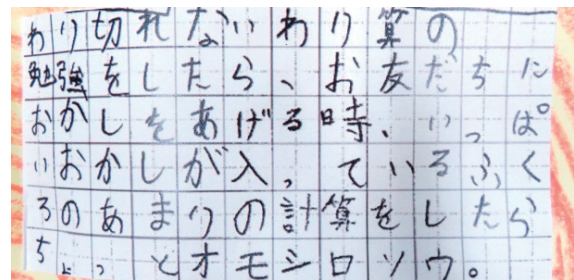 わり切れないわり算の
勉強をしたら、お友だちに
おかしをあげる時、いっぱ
いおかしが入っているふく
ろのあまりの計算をしたら
ちょっとオモシロソウ。